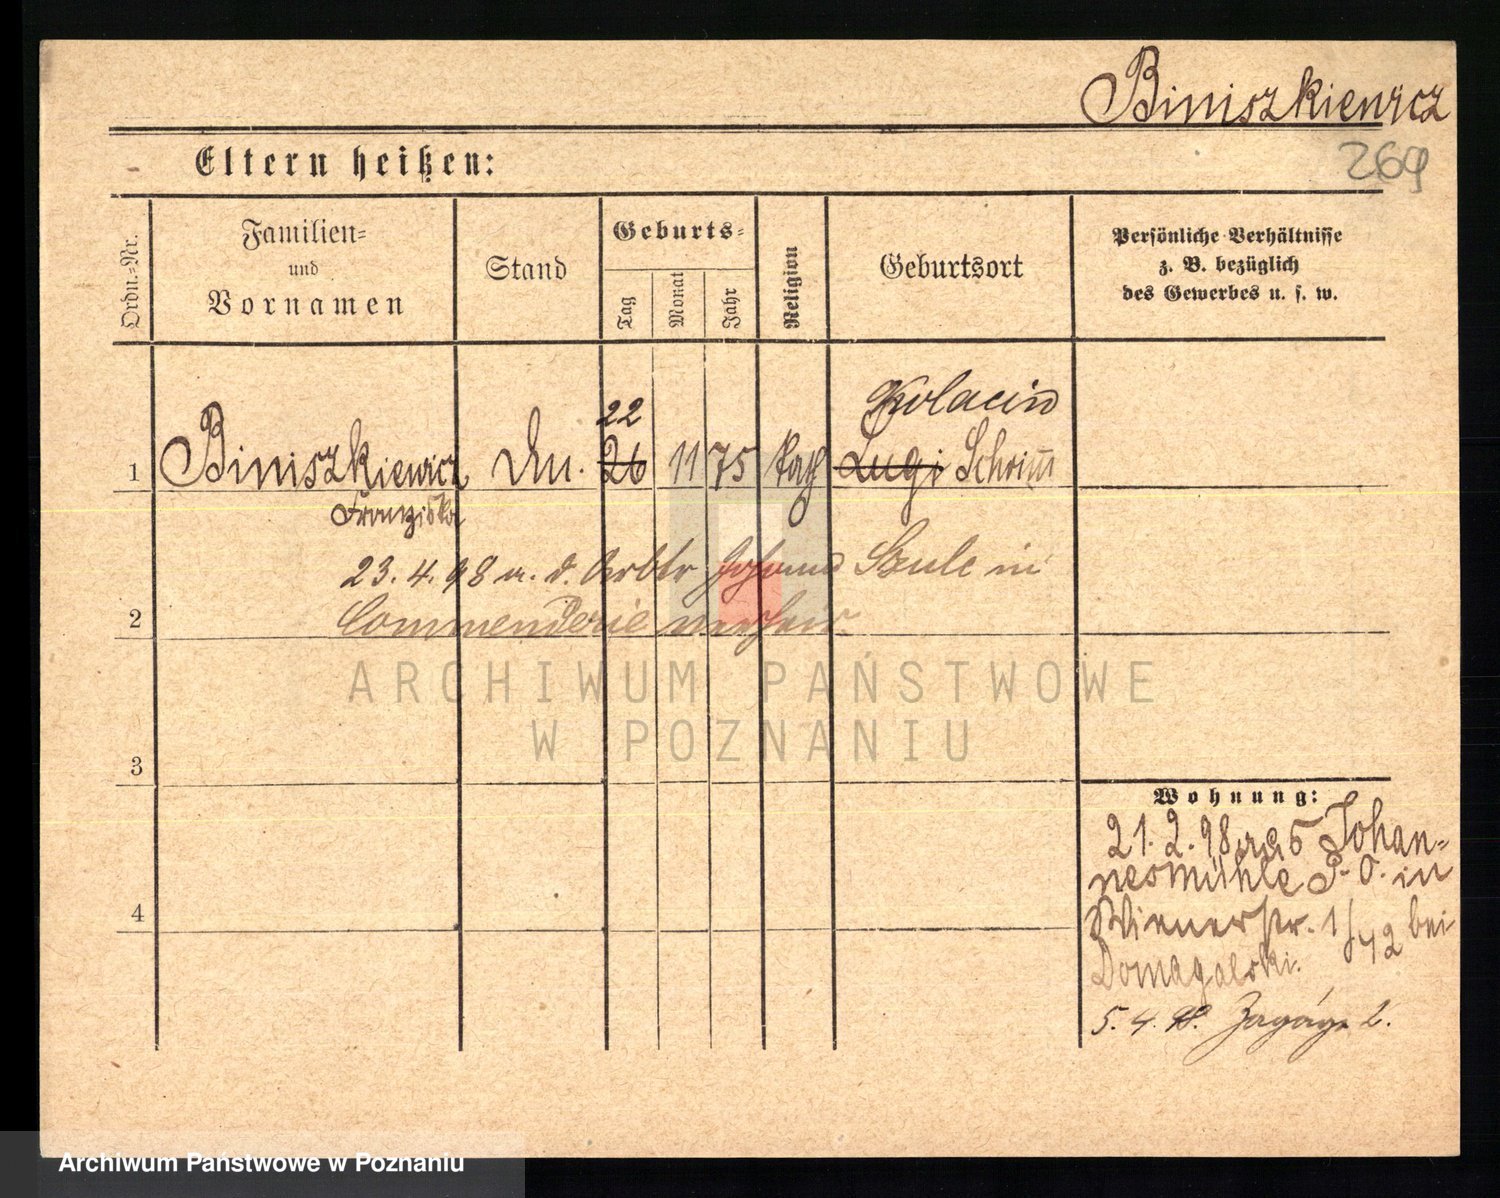 Biniszkiewicz
269
Eltern heißen:
Ordn.-Nr.
Familien-
und
Vornamen
Stand
Geburts-
Tag
Monat
Jahr
Religion
Geburtsort
Persönliche Verhältnisse
z. B. bezüglich
des Gewerbes u. s. w.
22
Kolacin
1 Biniszkiewicz 26 11 75 kath Lugi Schrim
Franziska
23. 4. 98 a. d. Arbtr Johann Szulc in
2 Commenderie verheir.
ARCHIWUM PAŃSTWOWE
W POZNANIU
3
Wohnung:
21. 2. 98 Johan-
nesmühle P. O. in
4
Wienerstr. bei
Domagalski.
5. 4. 98. Zagórze 2.
Archiwum Państwowe w Poznaniu